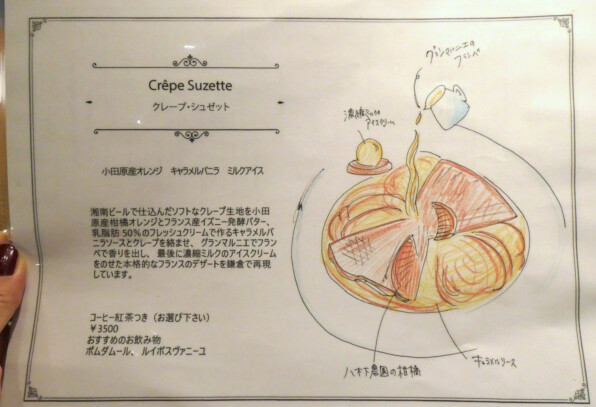 Crêpe Suzette
クレープ・シュゼット
小田原産オレンジ キャラメルバニラ ミルクアイス
湘南ビールで仕込んだソフトなクレープ生地を小田
原産柑橘オレンジとフランス産イズニー発酵バター、
乳脂肪50%のフレッシュクリームで作るキャラメルバ
ニラソースとクレープを絡ませ、グランマルニエでフラン
ベで香りを出し、最後に濃縮ミルクのアイスクリーム
をのせた本格的なフランスのデザートを鎌倉で再現
しています。
コーヒー紅茶つき（お選び下さい）
￥3500
おすすめのお飲み物
ポムダムール、ルイボスヴァニーユ
グランマルニエの
フランベ
濃縮ミルク
アイスクリーム
八木下農園の柑橘
キャラメルソース